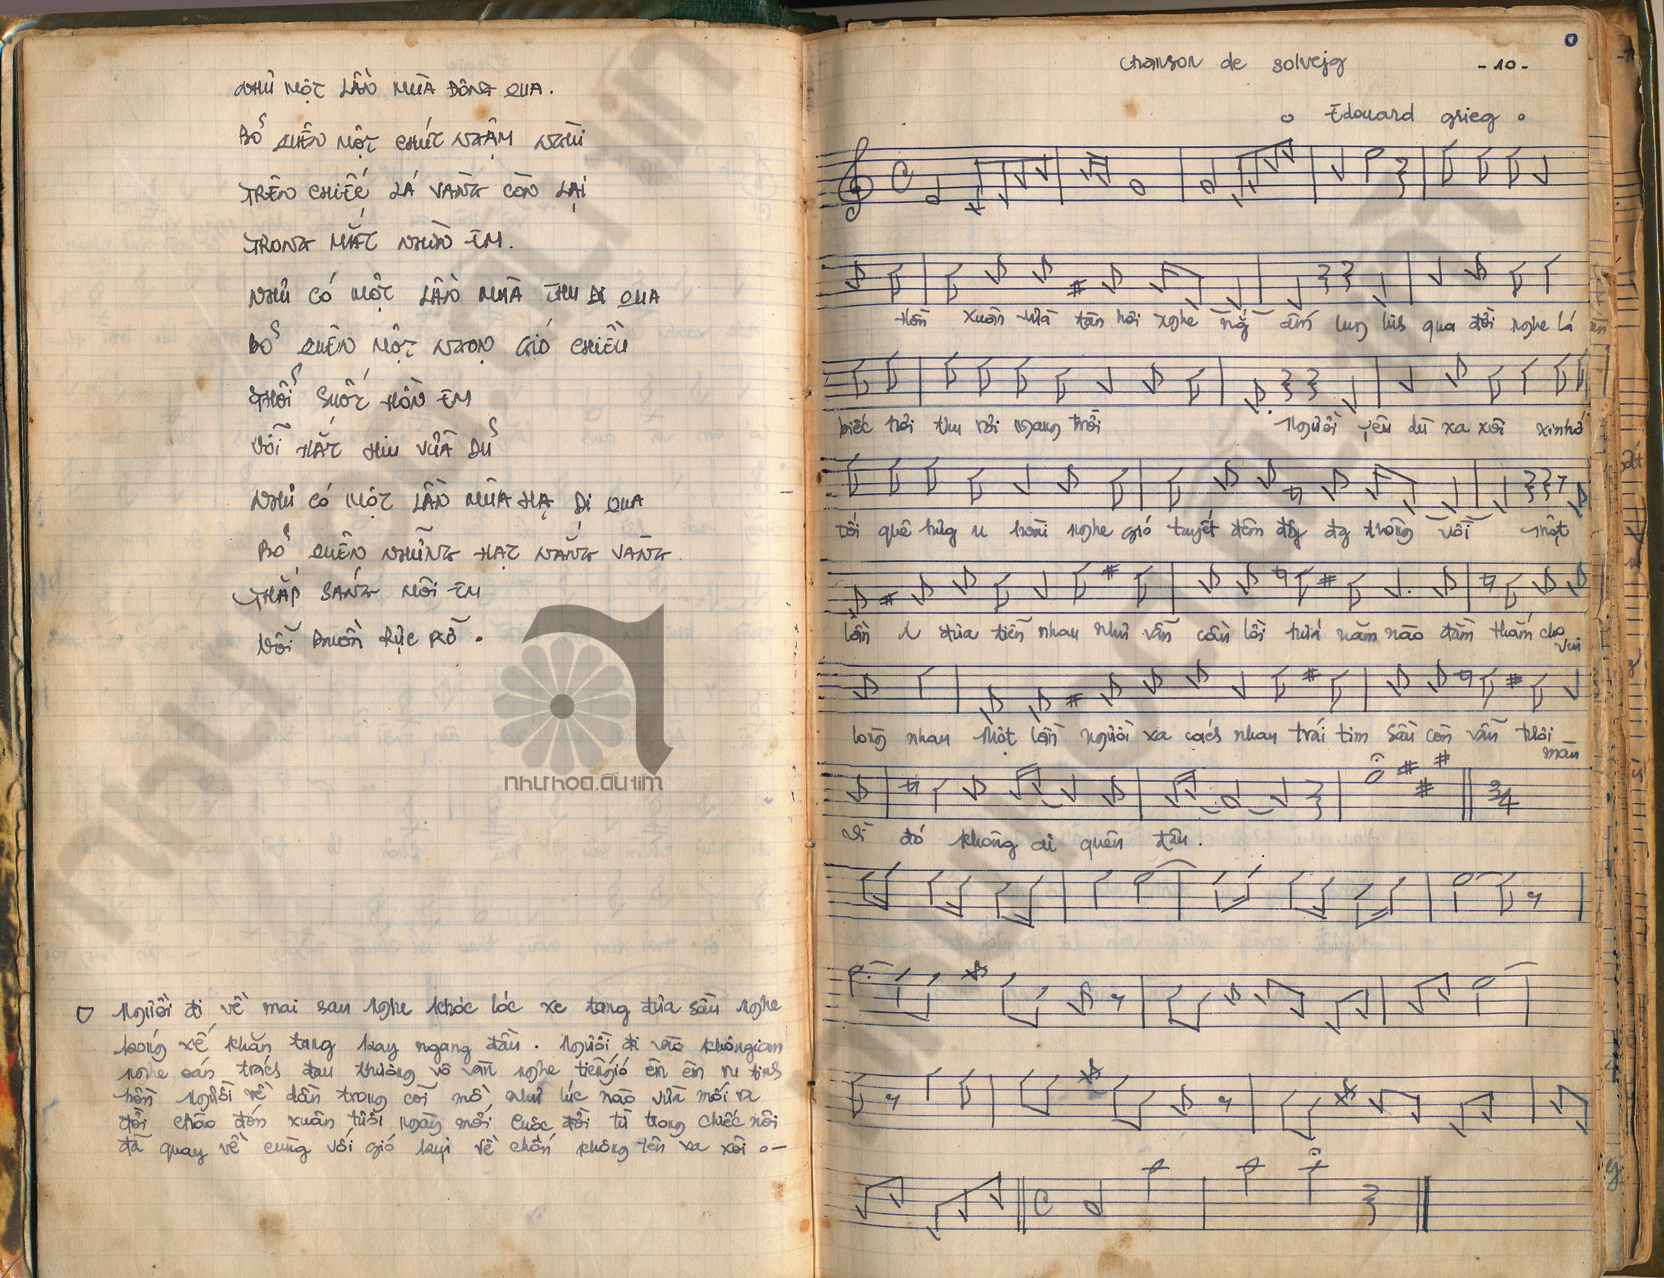 NHƯ MỘT LẦN MÙA ĐÔNG QUA.
BỎ QUÊN MỘT CHÚT NGẬM NGÙI
TRÊN CHIẾC LÁ VÀNG CÒN LẠI
TRONG MẮT NHÌN EM.
NHƯ CÓ MỘT LẦN MÙA THU ĐI QUA
BỎ QUÊN MỘT NGỌN GIÓ CHIỀU
THỔI SUỐT HỒN EM
VỚI HẮT HIU VỪA ĐỦ
NHƯ CÓ MỘT LẦN MÙA HẠ ĐI QUA
BỎ QUÊN NHỮNG HẠT NẮNG VÀNG.
THẮP SÁNG MÔI EM
VỚI BUỒN RỰC RỠ.
như hoa.ấu tím
Người đi về mai sau nghe khóc lóc xe tang đưa sầu nghe
bóng xế khăn tang bay ngang đầu. Người đi vào không gian
nghe oán trách đau thương vô vàn nghe tiếng gió êm êm ru tình
hồn người về dần trong cõi mồ, như lúc nào vừa mới ra
đời chào đón xuân tươi ngàn mới cuộc đời từ trong chiếc nôi
đã quay về cùng với gió bụi về chốn không tên xa xôi
Chanson de Solvejg -10-
Edouard grieg
Hồn xuân vừa tàn hôi nghe nắng ấm lung lũ qua đồi nghe lá
biếc rơi thu rơi ngang trời Người yêu dù xa xôi xin nhớ
tới quê hưg u hoài nghe gió tuyết đêm đôg đg trông vời một
lần ta đùa tiễn nhau như vẫn còn lời hứa năm nào đằm thắm cho vui
lòng nhau Một lần người xa cách nhau trái tim sầu còn vẫn thôi màn
vì đó không ai quên đâu.